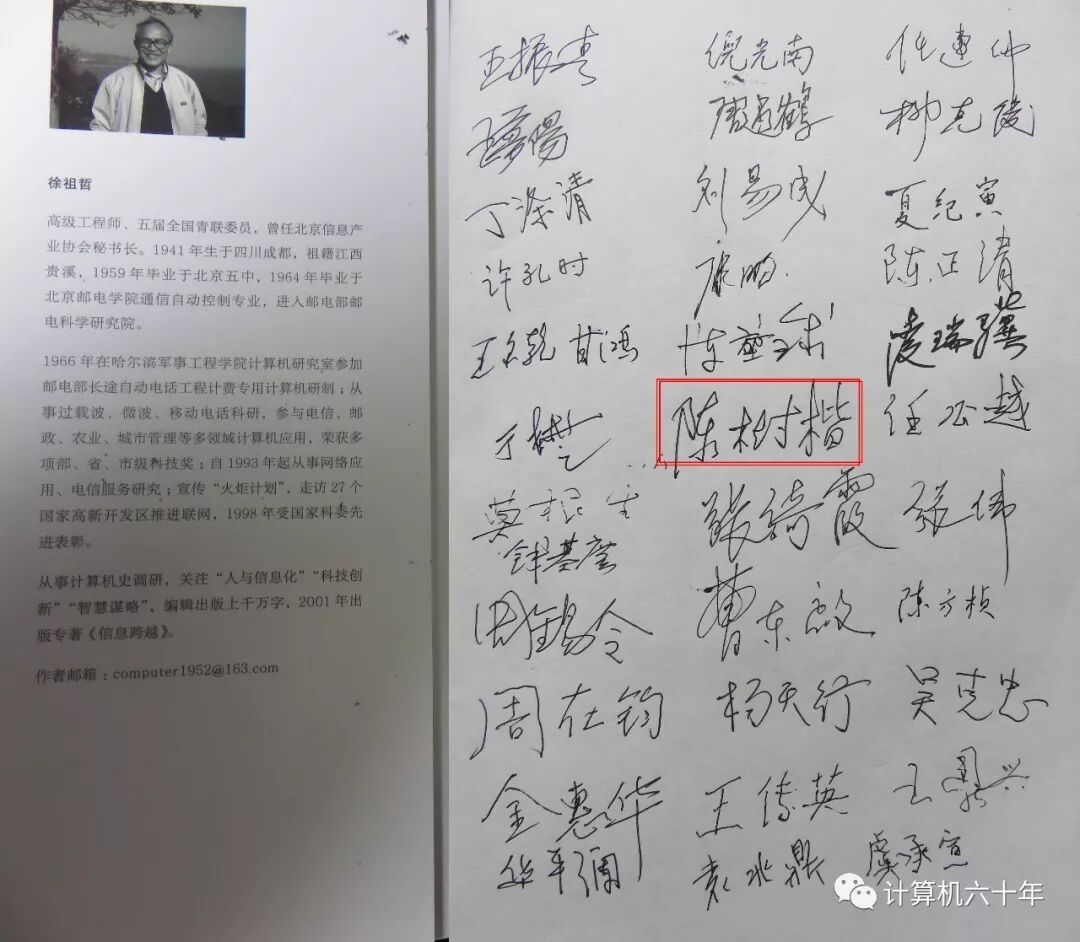 徐祖哲
高级工程师、五届全国青联委员，曾任北京信息产
业协会秘书长。1941 年生于四川成都，祖籍江西
贵溪，1959 年毕业于北京五中，1964 年毕业于
北京邮电学院通信自动控制专业，进入邮电部邮
电科学研究院。
1966 年在哈尔滨军事工程学院计算机研究室参加
邮电部长途自动电话工程计费专用计算机研制；从
事过载波、微波、移动电话科研，参与电信、邮
政、农业、城市管理等多领域计算机应用，荣获多
项部、省、市级科技奖；自 1993 年起从事网络应
用、电信服务研究；宣传“火炬计划”，走访 27 个
国家高新开发区推进联网，1998 年受国家科委先
进表彰。
从事计算机史调研，关注“人与信息化”“科技创
新”“智慧谋略”，编辑出版上千万字，2001 年出
版专著《信息跨越》。
作者邮箱：computer1952@163.com
倪光南
刘易成 夏纪寅
丁涤清
许孔时 康鹏 陈正清
甘鸿 凌瑞骥
陈树楷 任公越
莫根生 张绮霞 张伟
周锡令 曹东启 陈方桢
周在钧 杨天行 吴克忠
金惠华 王传英
袁兆鼎 虞承宣
计算机六十年